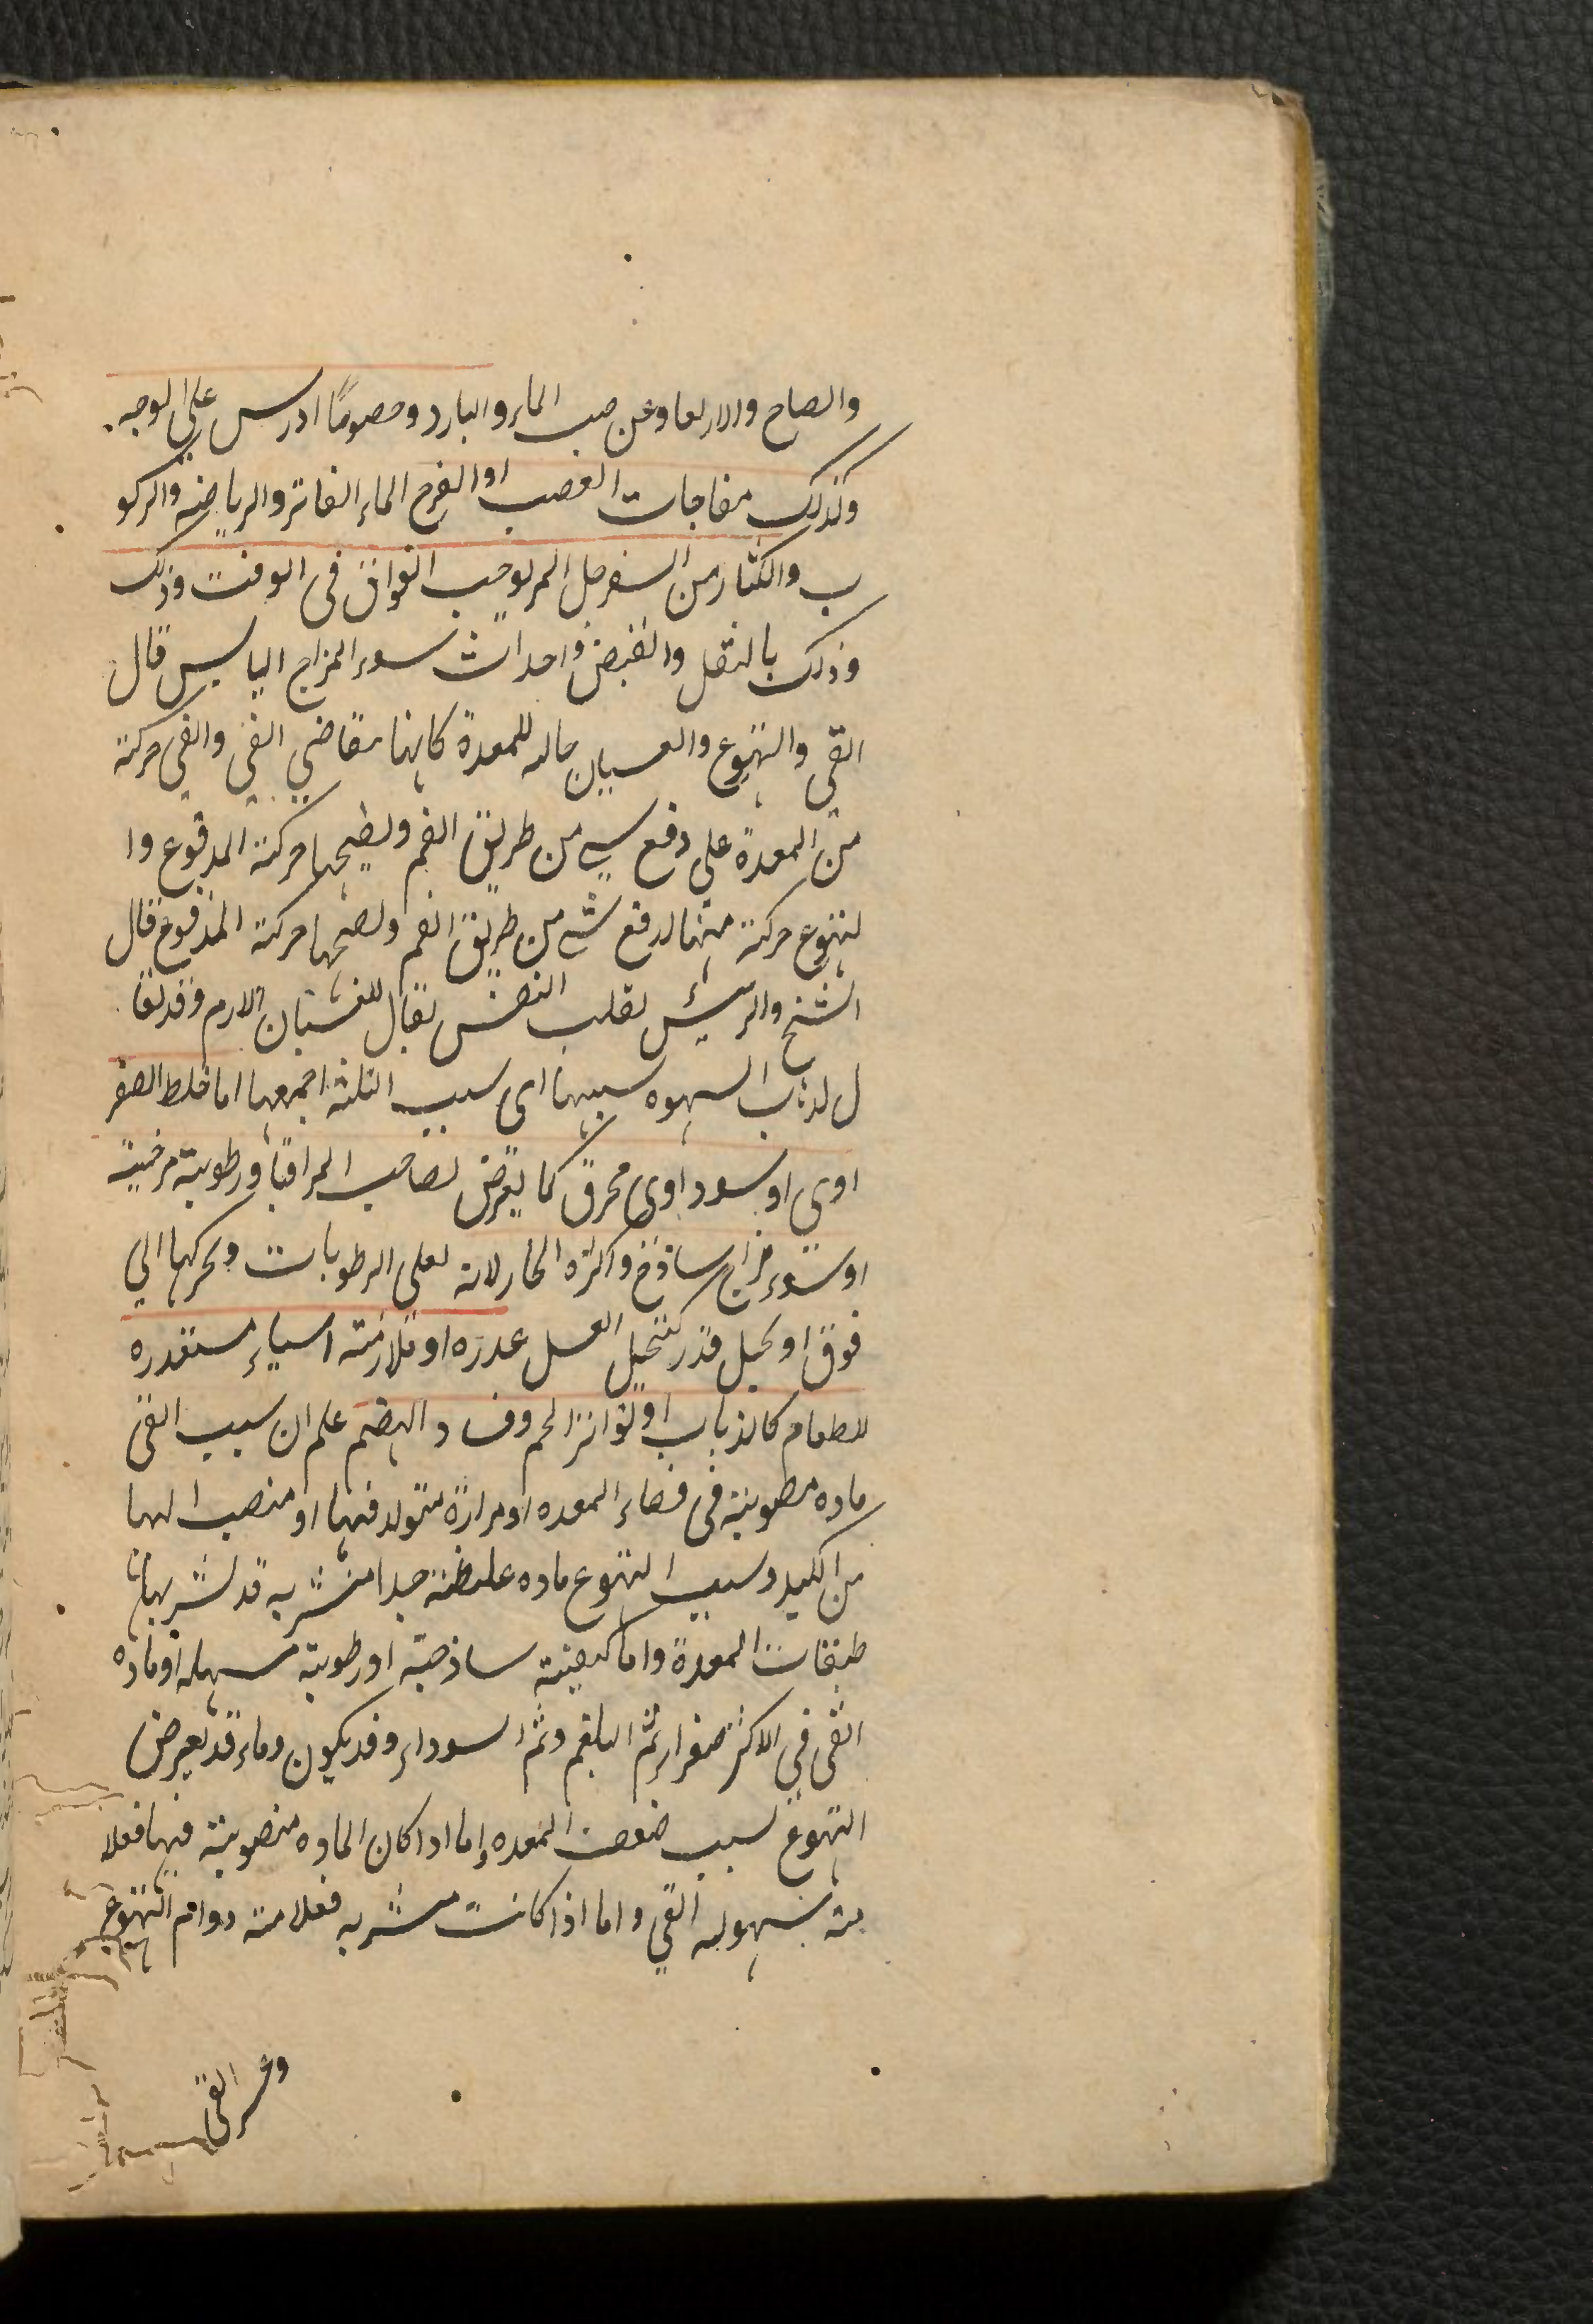 والصاح والارتعا وعن صب الماء والبارد وخصوصًا اذ رس على الوجه
وكذلك مفاجات الغضب او الفرح الماء الفاتر والرياضه والركو
ب والكثار من السفرجل المر يوجب الفواق فى الوقت وذلك
وذلك بالثقل والقبض واحداث سوء المزاج اليابس قال
القى والتهوع والغسيان حاله للمعدة كانها تقاضي القى والقى حركة
من المعدة على دفع شي من طريق الفم ويصحبها حركة المدفوع وا
لتهوع حركة منها لدفع شى من طريق الفم ولا يصحبها حركة المدفوع قال
الشيخ والرئيس تقلب النفس يقال للغشيان الازم وقد يقا
ل لذهاب الشهوه سببها اى سبب الثلثة اجمعها اما خلط الصفر
اوي او سوداوى محرق كما يعرض لصاحب المراقيا او رطوبة مرخية
او سوء مزاج ساذج واكثره الحار لانه يغلى الرطوبات ويحركها الي
فوق او تخيل قذر كتخيل العسل عذره او ملازمة اشياء مستقذره
للطعام كالذباب او تواتر التخم وفساد الهضم علم ان سبب القى
ماده مصوبية فى فضاء المعده او مرارة متولد فيها او منصب اليها
من الكبد وسبب التهوع ماده غليظة جدا متشربه قد تشربها
طبقات المعدة واما كيفية ساذجة او رطوبة مسهله او ماده
القى في الاكثر صفراء ثم البلغم وثم السوداء وقد يكون دماء قد يعرض
التهوع لسبب ضعف المعده اما اذا كان الماده منصوبية فيها فعلا
مته سهوله القي واما اذا كانت متشربه فعلامته دوام التهوع
وعسر القى